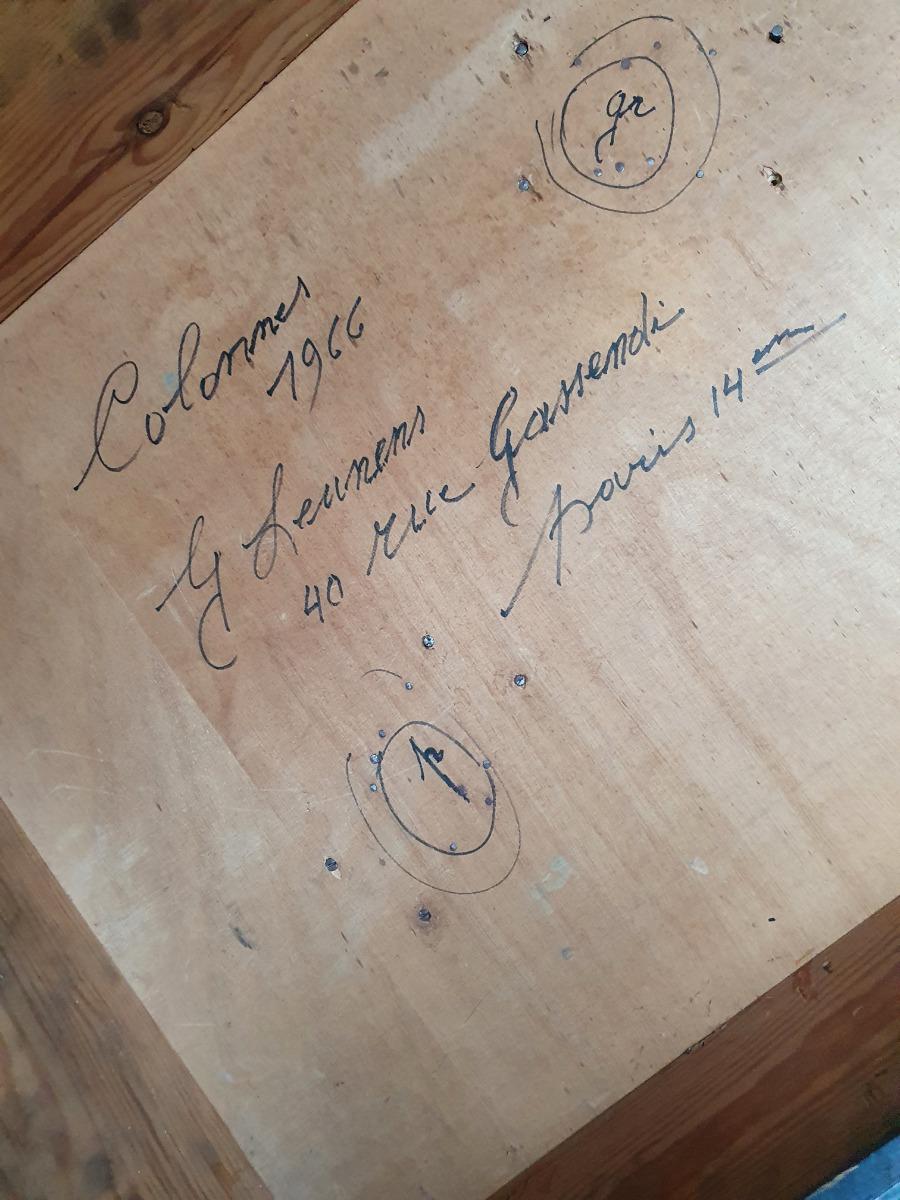 gr
Colonnes
1966
G Leunens
40 rue Gassendi
Paris 14 em
p